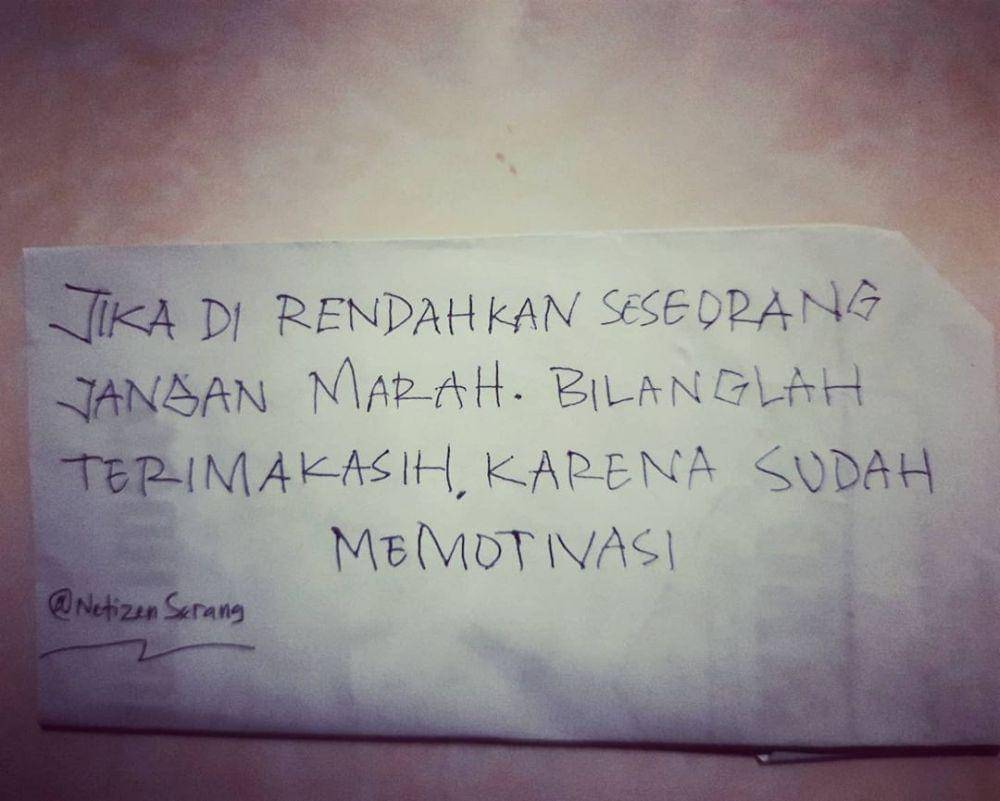 JIKA DI RENDAHKAN SESEORANG
JANGAN MARAH. BILANGLAH
TERIMAKASIH, KARENA SUDAH
MEMOTIVASI
@Netizen Serang